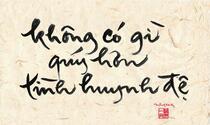 không có gì
quý hơn
tình huynh đệ